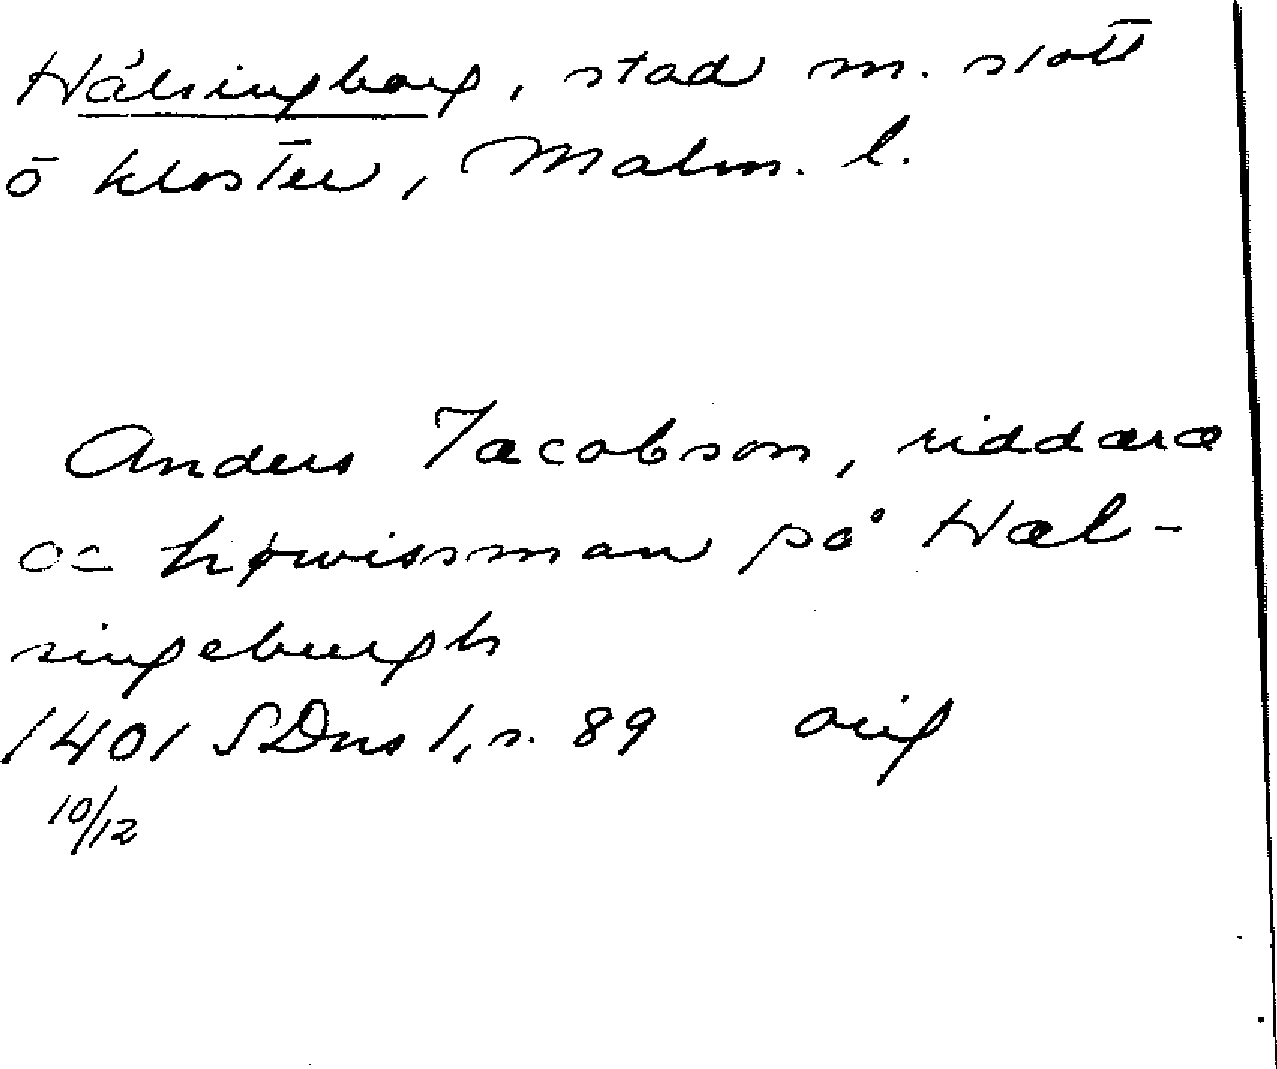 Hälsingborg, stad m. slott
o kloster, Malm. l.
Anders Jacobson, riddæræ
oc høwissman på Hæl-
singeburgh
1401 SDns 1, s. 89 orig
10/12